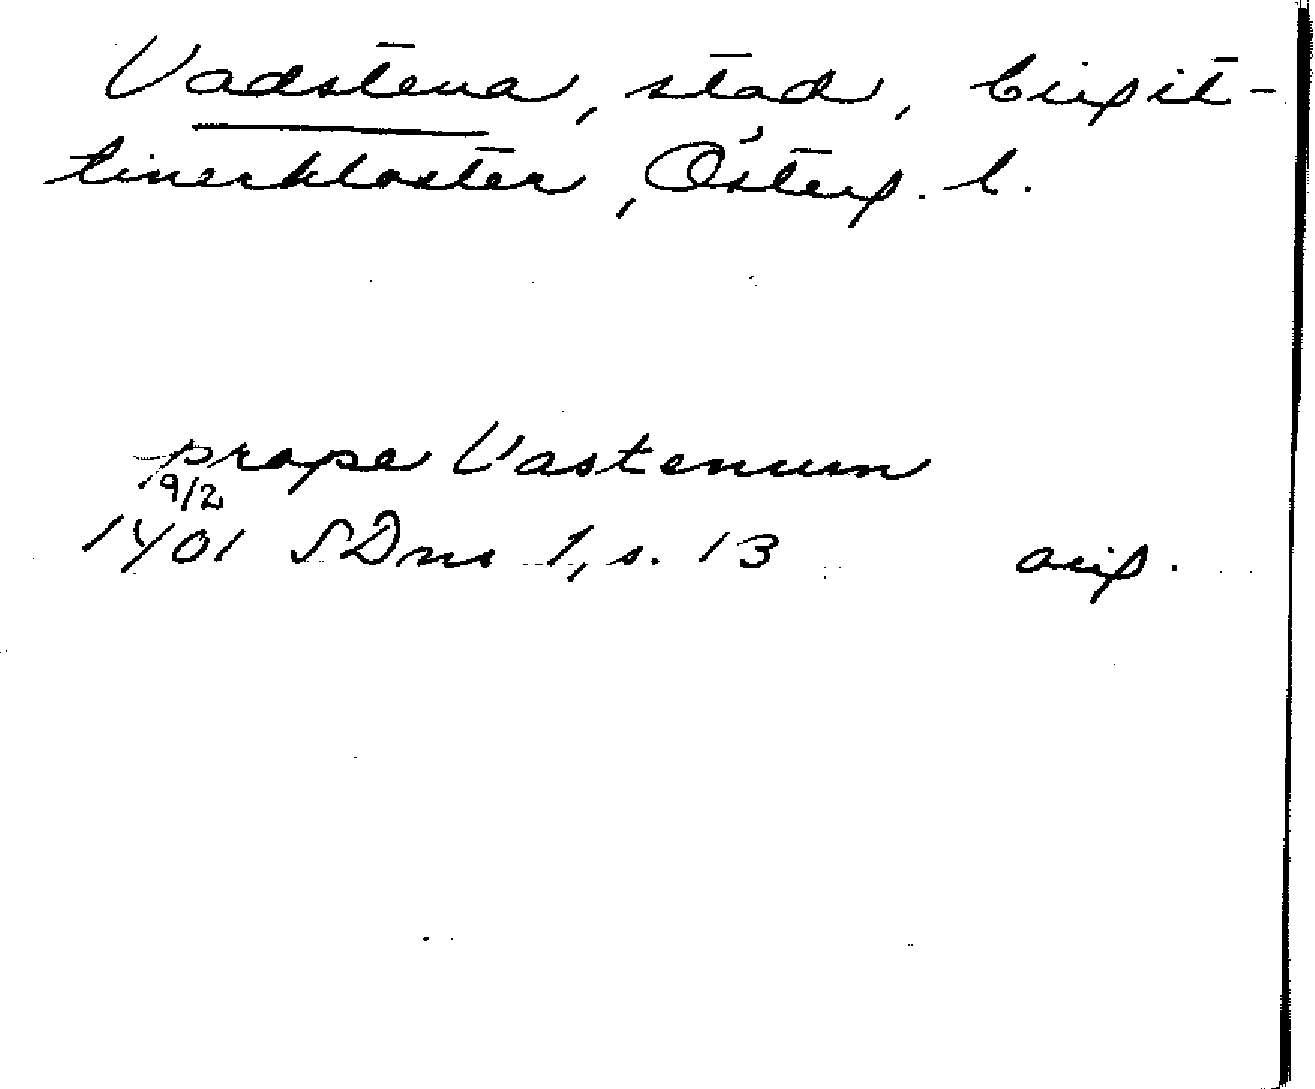 Vadstena, stad, birgit-
tinerkloster, Österg. l.
prope Vastenum
19/2
1401 SDns 1, s. 13 orig.